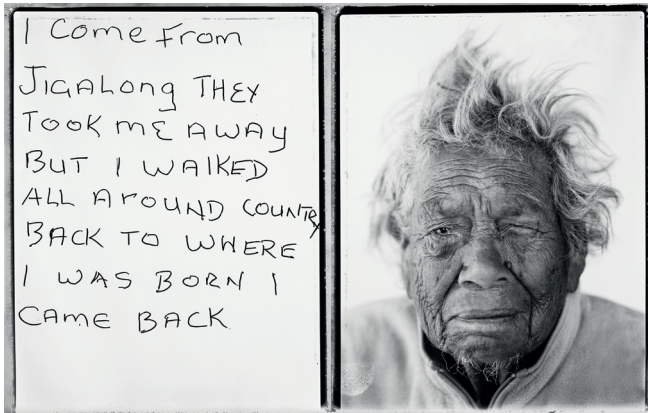 I COME FROM
JIGALONG THEY
TOOK ME AWAY
BUT I WALKED
ALL AROUND COUNTRY
BACK TO WHERE
I WAS BORN I
CAME BACK